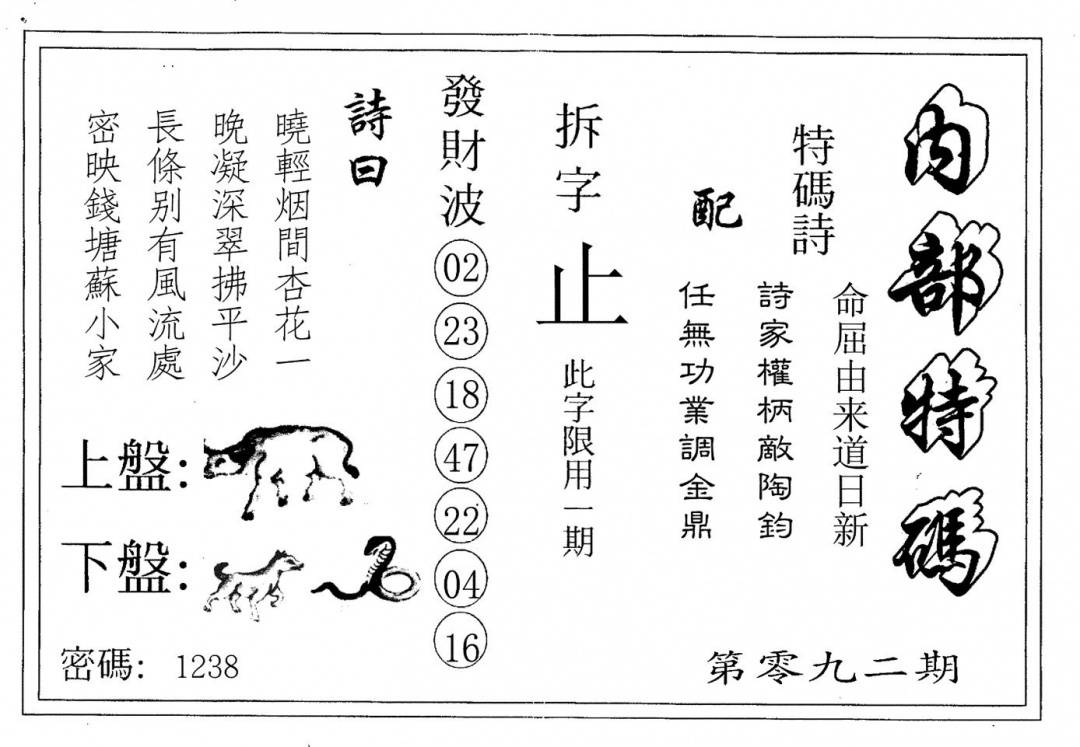 內部特碼
特碼詩
命屈由来道日新
詩家權柄敵陶鈞
任無功業調金鼎
配
拆字
止
此字限用一期
發財波
02
23
18
47
22
04
16
詩曰
曉輕烟間杏花一
晚凝深翠拂平沙
長條别有風流處
密映錢塘蘇小家
上盤：
下盤：
密碼： 1238
第零九二期